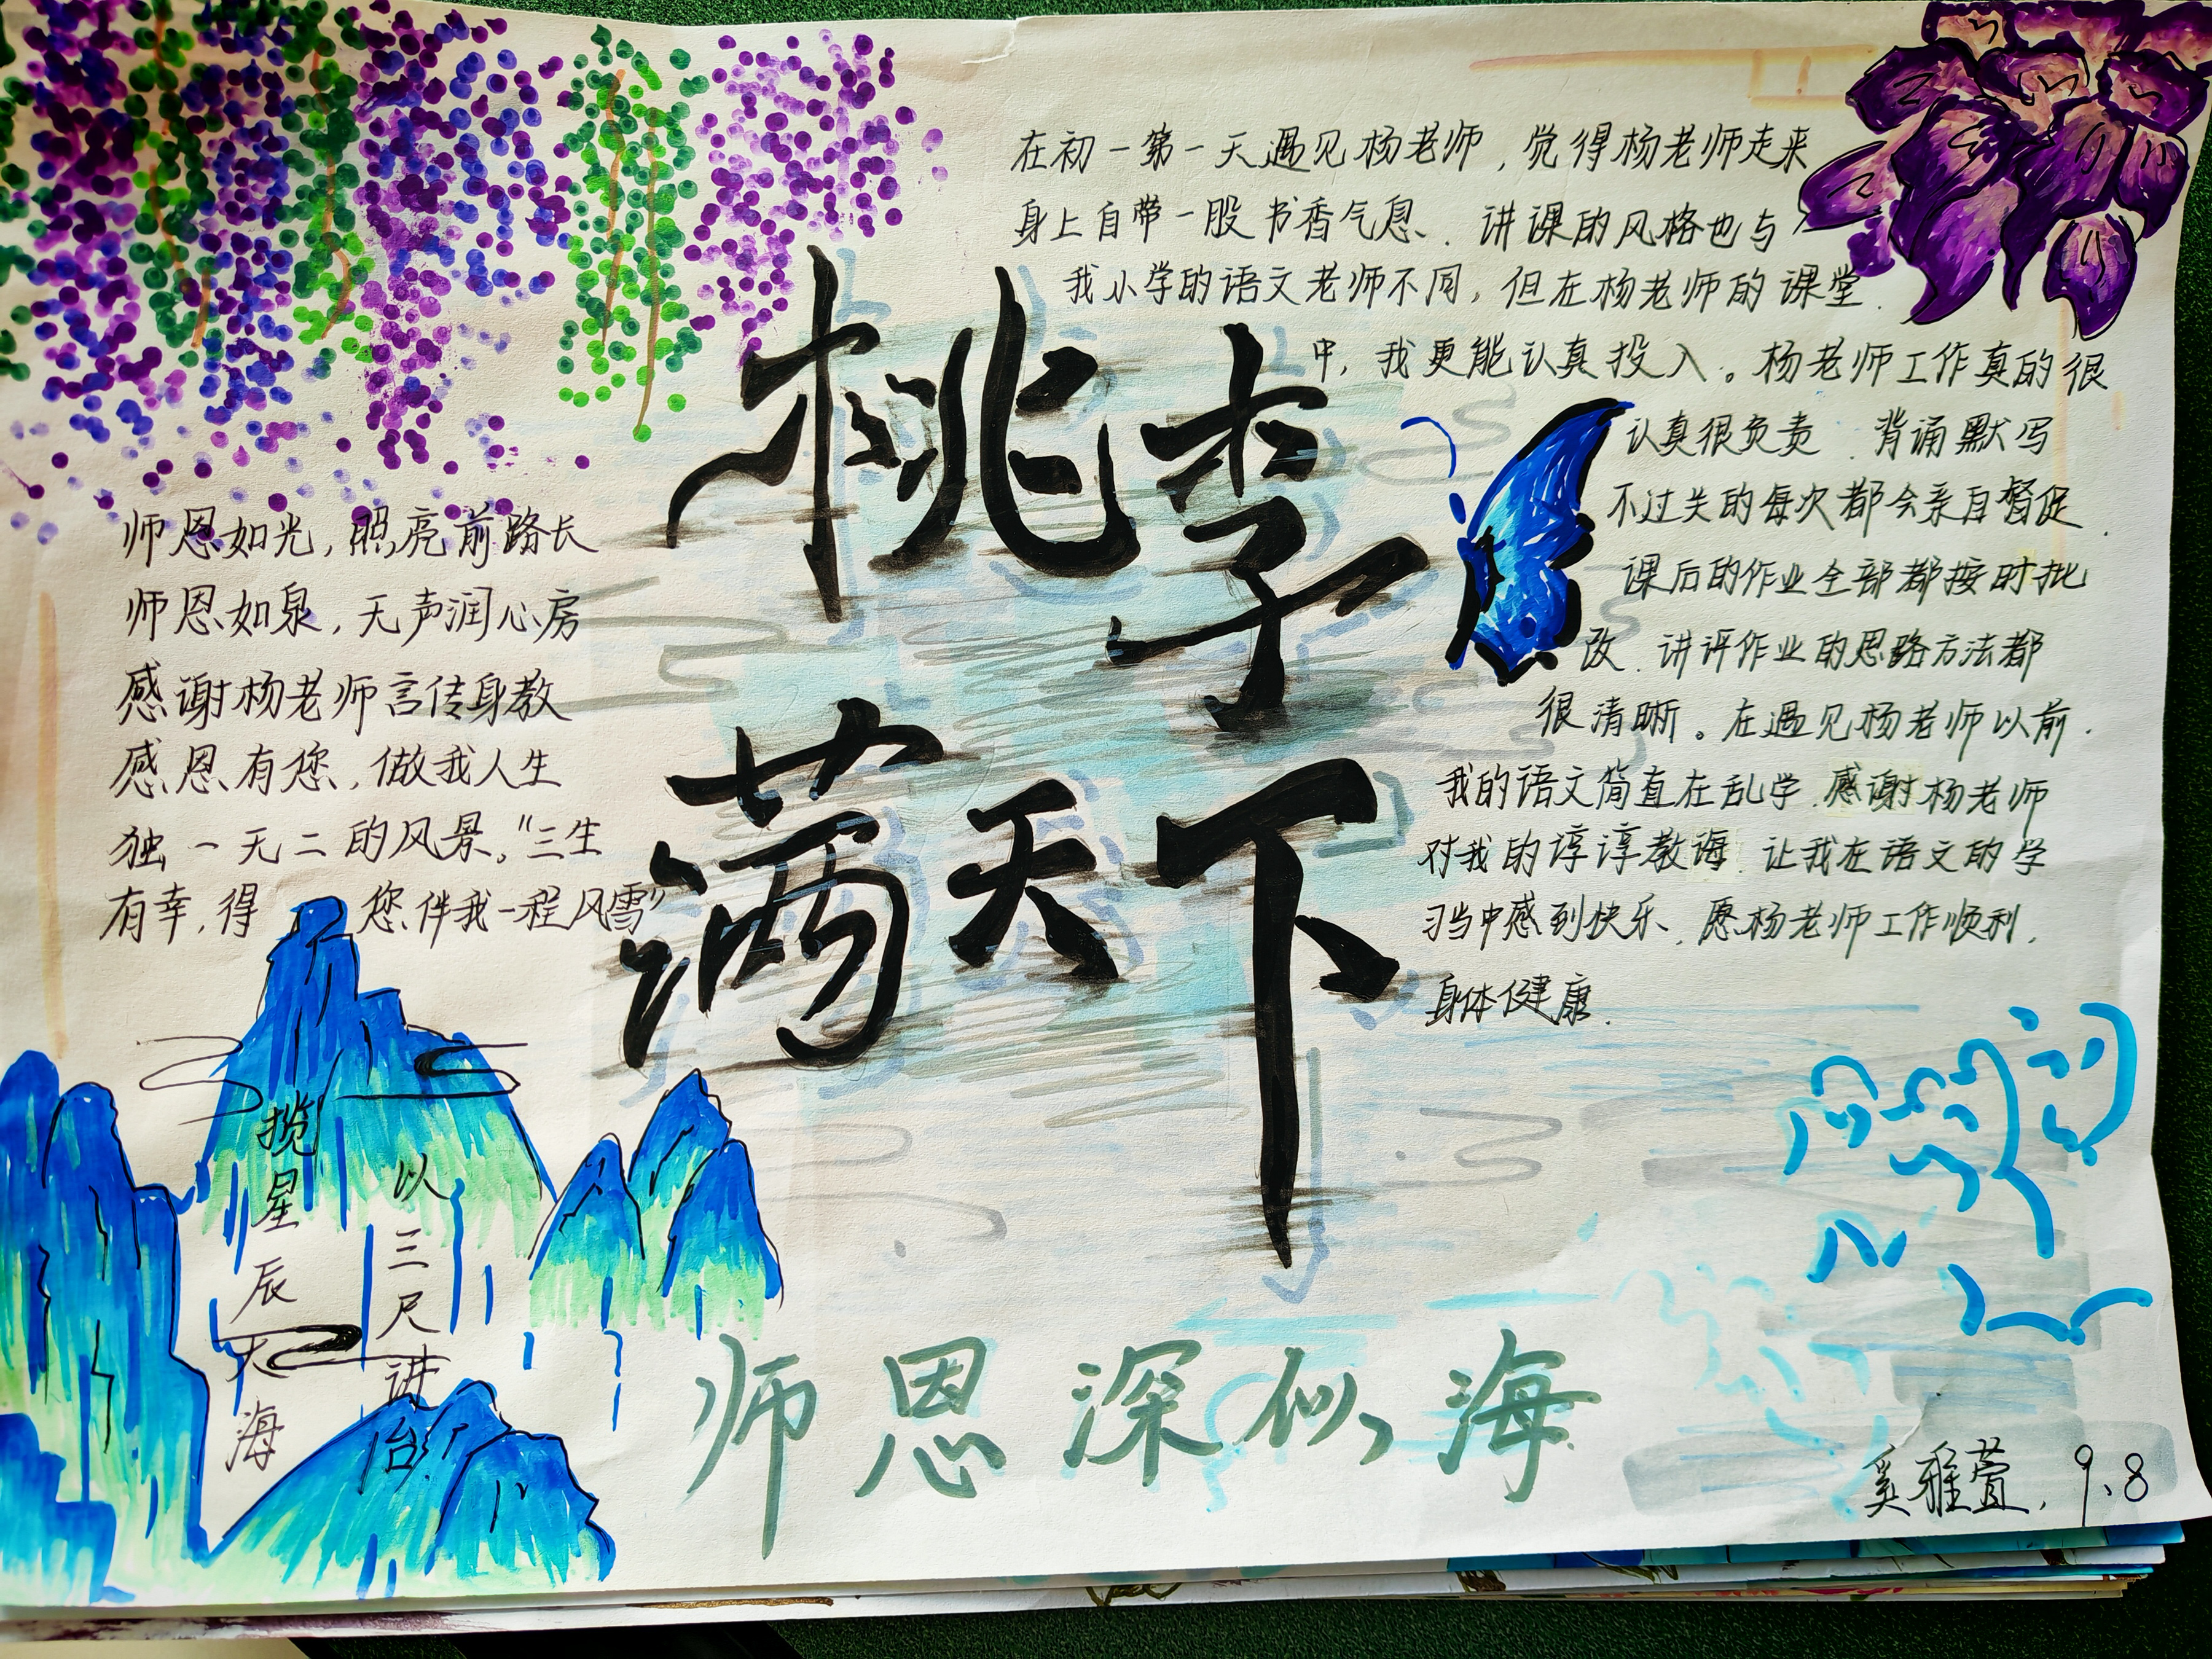 桃李
满天下
在初一第一天遇见杨老师,觉得杨老师走来
身上自带一股书香气息.讲课的风格也与
我小学的语文老师不同,但在杨老师的课堂.
中,我更能认真投入。杨老师工作真的很
认真很负责.背诵默写
不过关的每次都会亲自督促.
课后的作业全部都按时批
改.讲评作业的思路方法都
很清晰。在遇见杨老师以前.
我的语文简直在乱学.感谢杨老师
对我的谆谆教诲.让我在语文的学
习当中感到快乐.愿杨老师工作顺利.
身体健康.
师恩如光,照亮前路长
师恩如泉,无声润心房
感谢杨老师言传身教
感恩有您,做我人生
独一无二的风景。“三生
有幸,得您伴我一程风雪”
以三尺讲台
揽星辰大海
师恩深似海
奚雅萱.9.8